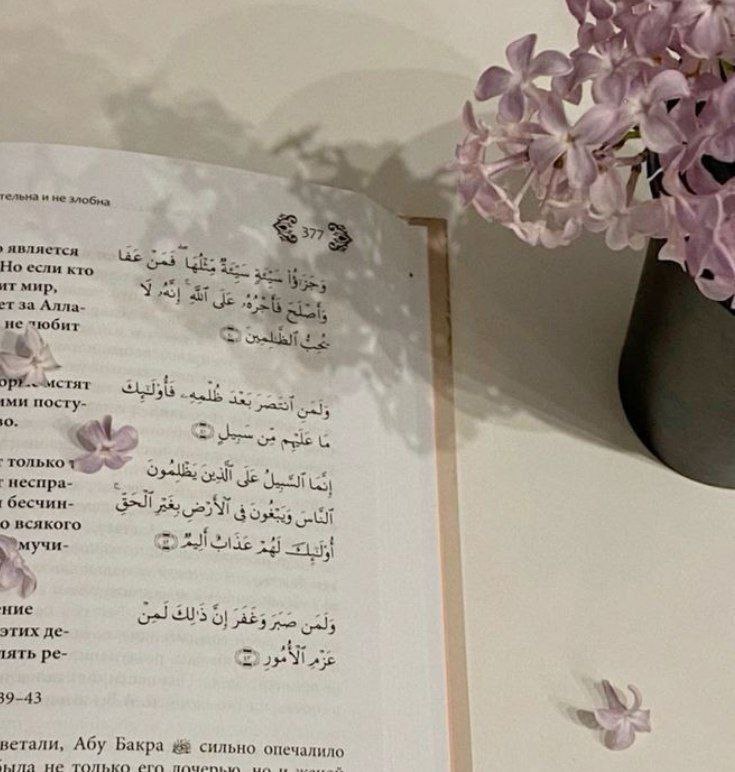 тельна и не злобна
377
является
Но если кто
ит мир,
ет за Алла-
не любит
мстят
ими посту-
во.
только
неспра-
бесчин-
о всякого
мучи-
ение
этих де-
лять ре-
39–43
وَجَزَٰٓؤُا۟ سَيِّئَةٍ سَيِّئَةٌ مِّثْلُهَا ۖ فَمَنْ عَفَا
وَأَصْلَحَ فَأَجْرُهُۥ عَلَى ٱللَّهِ ۚ إِنَّهُۥ لَا
يُحِبُّ ٱلظَّٰلِمِينَ ٤٠
وَلَمَنِ ٱنتَصَرَ بَعْدَ ظُلْمِهِۦ فَأُو۟لَٰٓئِكَ
مَا عَلَيْهِم مِّن سَبِيلٍ ٤١
إِنَّمَا ٱلسَّبِيلُ عَلَى ٱلَّذِينَ يَظْلِمُونَ
ٱلنَّاسَ وَيَبْغُونَ فِى ٱلْأَرْضِ بِغَيْرِ ٱلْحَقِّ ۚ
أُو۟لَٰٓئِكَ لَهُمْ عَذَابٌ أَلِيمٌ ٤٢
وَلَمَن صَبَرَ وَغَفَرَ إِنَّ ذَٰلِكَ لَمِنْ
عَزْمِ ٱلْأُمُورِ ٤٣
ветали, Абу Бакра сильно опечалило
была не только его дочерью, но и женой